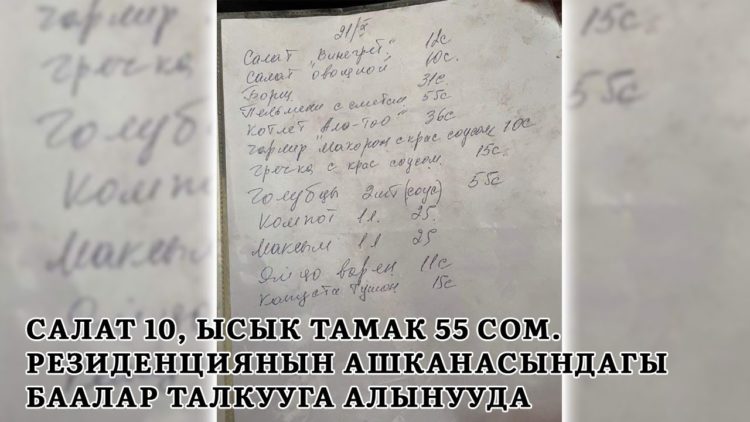 21/X
Салат "Винегрет" 12с
Салат "овощной" 10с.
Борщ 31с
Пельмени с сметан 55с
Котлет "Ала-Тоо" 36с
гарнир Макарон с крас соусом 10с
гречка с крас соусом 15с.
Голубцы 2шт (соус) 55с
Компот 1л. 25.
Максым 1л 25
Яйцо варен 11с
Капуста Тушон 15с
САЛАТ 10, ЫСЫК ТАМАК 55 СОМ.
РЕЗИДЕНЦИЯНЫН АШКАНАСЫНДАГЫ
БААЛАР ТАЛКУУГА АЛЫНУУДА